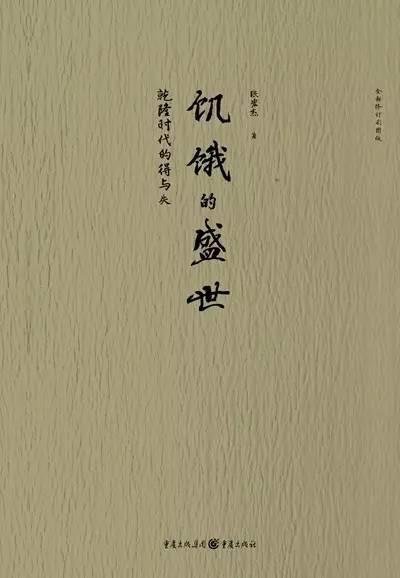 全新修订彩图版
张宏杰 著
饥饿的盛世
乾隆时代的得与失
重庆出版集团 重庆出版社